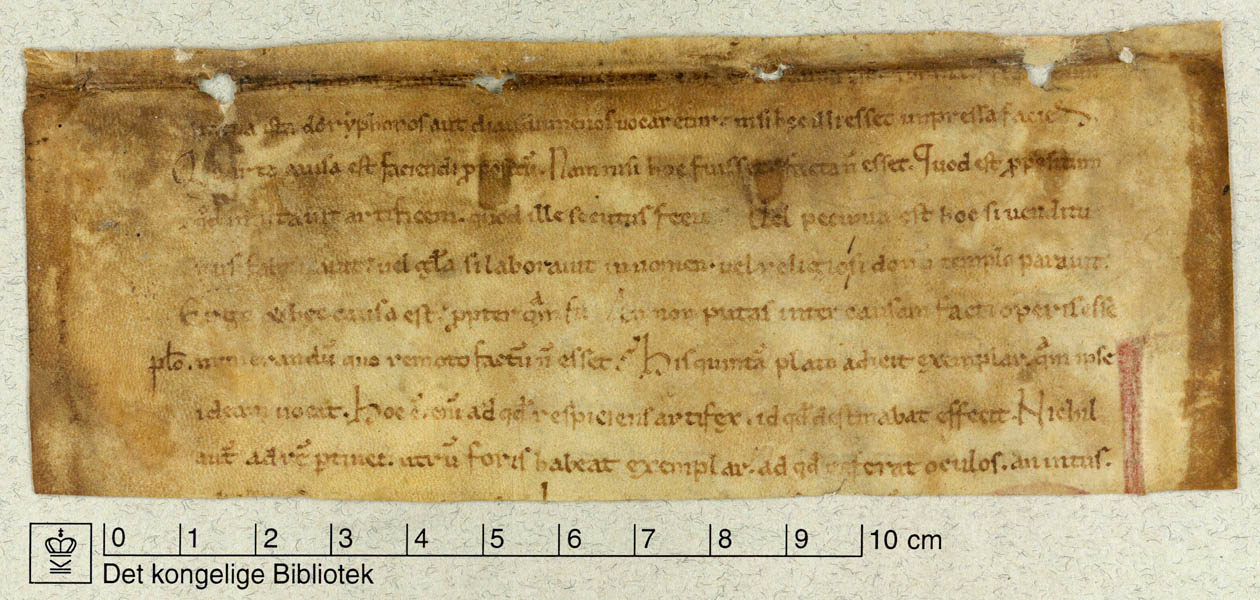 ista doryphoros aut diadumenos vocaretur. nisi hęc illi esset impressa facies.
Quarta causa est faciendi ꝓpositū. Nam nisi hoc fuisset. facta n̄ esset. Quod est ꝓpositum
qd̄ inuitauit artificem. quod ille secutus fecit. Vel pecunia est hoc si uenditu
rus fabricauit. uel gl̄a si laborauit in nomen. uel religio si donū templo parauit.
Ergo & hec causa est. ꝓpter qͣm fit. An non putas inter causam facti operis esse
numerandū quo remoto factū n̄ esset. His quintā plato adicit exemplar. qͣm ipse
ideam uocat. Hoc ē. enī ad qd̄ respiciens artifex. id qd̄ destinabat effecit. Nichil
aut̄ ad rē ꝑtinet. utrū foris habeat exemplar. ad qd̄ referat oculos. an intus.
0 1 2 3 4 5 6 7 8 9 10 cm
Det kongelige Bibliotek